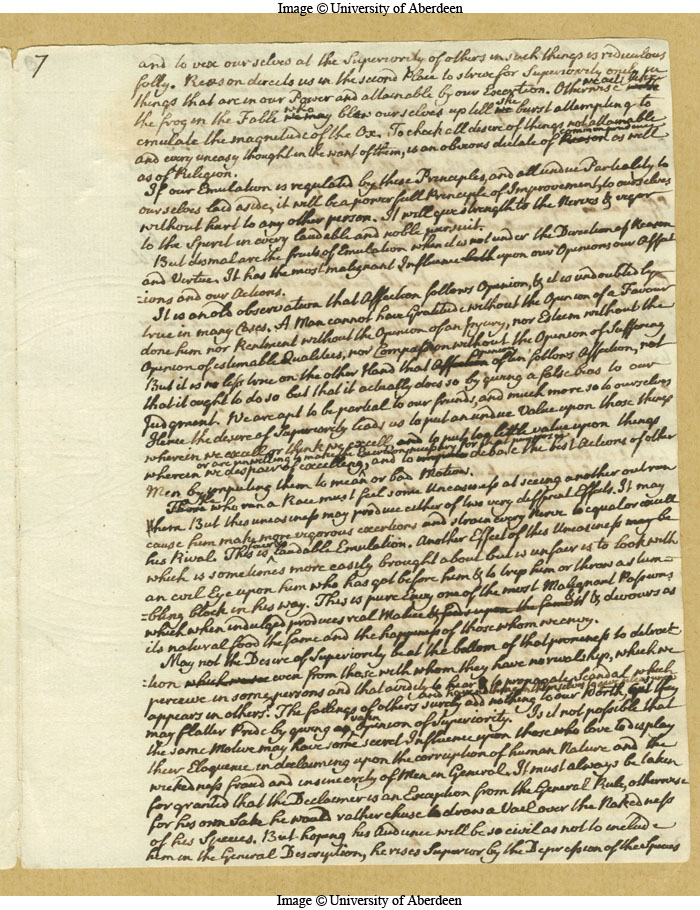 Image © University of Aberdeen
7
and to vex ourselves at the Superiority of others in such things is ridiculous
folly. Reason directs us in the second Place to strive for Superiority only in
things that are in our Power and attainable by our Exertion. Otherwise we act like
the frog in the Fable who may blew ourselves up till she burst attempting to
emulate the magnitude of the Ox. To check all desire of things not attainable
and every uneasy thought in the want of them, is an obvious dictate of common prudence as well
as of Religion.
If our Emulation is regulated by these Principles, and all undue Partiality to
ourselves laid aside, it will be a powerfull Principle of Improvement to ourselves
without hurt to any other person. It will give strength to the Nerves & vigor
to the Spirit in every laudable and noble pursuit.
But dismal are the fruits of Emulation when it is not under the Direction of Reason
and Virtue. It has the most malignant Influence both upon our Opinions our Affect
-ions and our Actions.
It is an old observation that Affection follows Opinion, & it is undoubtedly
true in many Cases. A Man cannot have Gratitude without the Opinion of a Favour
done him nor Resentment without the Opinion of an Injury, nor Esteem without the
Opinion of estimable Qualities, nor Compassion without the Opinion of Suffering
But it is no less true on the other Hand that Opinion often follows Affection, not
that it ought to do so but that it actually does so by giving a false bias to our
Judgment. We are apt to be partial to our friends, and much more so to ourselves
Hence the desire of Superiority leads us to put an undue Value upon those things
wherein we excell or think we excell, and to put too little value upon things
or are unwilling to make the Exertion necessary for that purpose
wherein we despair of excelling, and to debase the best Actions of other
Men by imputing them to mean or bad Motives.
Those who run a Race must feel some Uneasiness at seeing another outrun
them. But this uneasiness may produce either of two very different Effects. It may
cause him make more vigorous exertions and strain every Nerve to equal or excell
his Rival. This is fair & laudable Emulation. Another Effect of this Uneasiness may be
which is sometimes more easily brought about but is unfair is to look with
an evil Eye upon him who has got before him & to trip him or throw a stum-
-bling block in his way. This is pure Envy one of the most Malignant Passions
which when indulged produces real Malice & feeds upon the fame & devours as
its natural food the fame and the happiness of those whom we envy.
May not the Desire of Superiority be at the bottom of that proneness to detract
-tion even from those with whom they have no rivalship, which we
perceive in some persons and that avidity to hear & to propagate Scandal which
appears in others. The failings of others surely add nothing to our Worth, yet they
may flatter Pride by giving a vain Opinion of Superiority. Is it not possible that
the same Motive may have some secret Influence upon those who love to display
their Eloquence in declaiming upon the corruption of human Nature and the
wickedness fraud and insincerity of Men in General. It must always be taken
for granted that the Declaimer is an Exception from the General Rule, otherwise
for his own Sake he would rather chuse to draw a Vail over the Nakedness
of his Species. But hoping his Audience will be so civil as not to include
him in the General Description, he rises Superior by the Depression of the Species
Image © University of Aberdeen